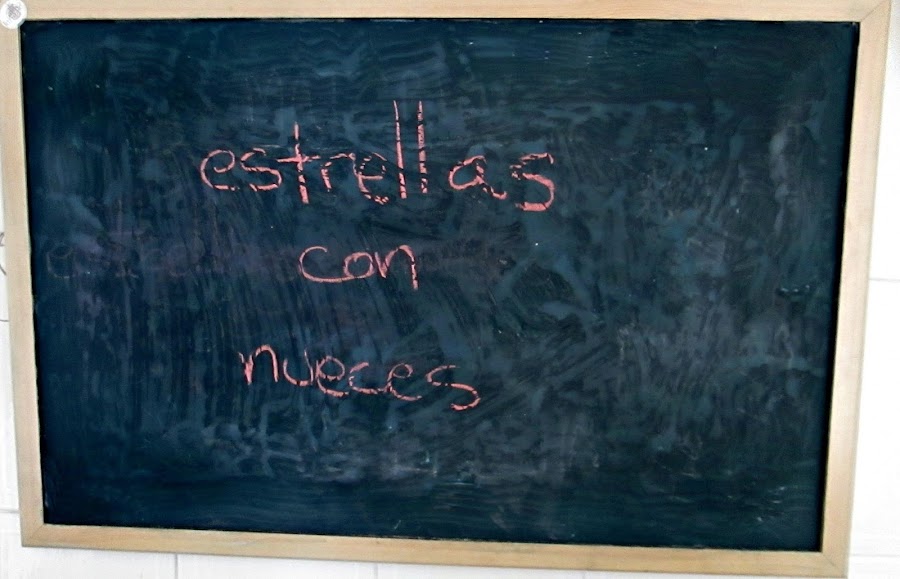 estrellas
con
nueces